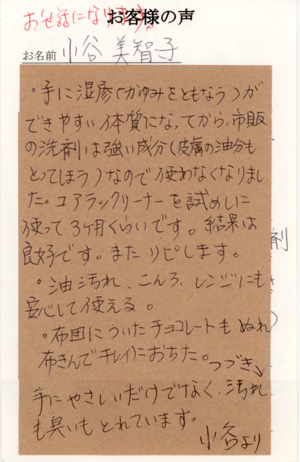 お世話になります。
お客様の声
お名前 小谷 美智子
・手に湿疹(かゆみをともなう)が
できやすい体質になってから、市販
の洗剤は強い成分(皮膚の油分も
とってほう)なので使わなくなりまし
た。コアラックリーナーを試めしに
使って3ヶ月くらいです。結果は
良好です。またリピします。
剤
・油汚れ、こんろ、レンジにも
安心して使える。
・布団についたチョコレートもぬれ
布きんでキレイにおちた。
つづき
手にやさしいだけでなく、汚れ
も臭いもとれています。
小谷より